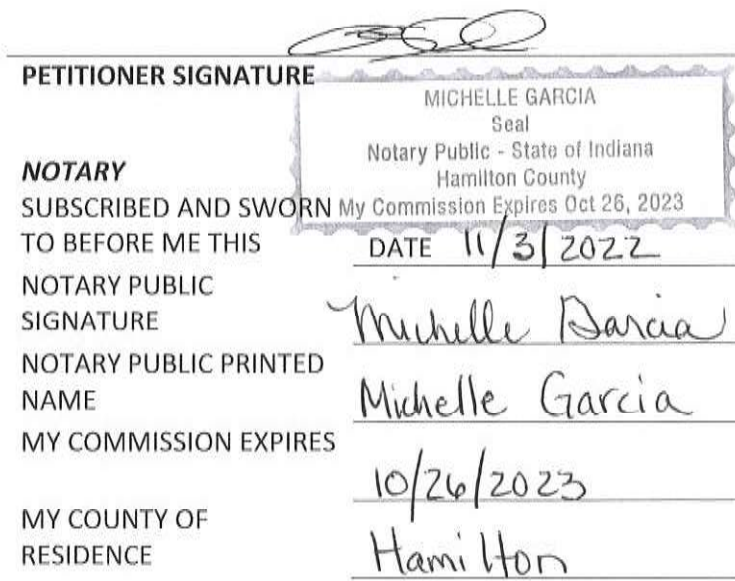 PETITIONER SIGNATURE
MICHELLE GARCIA
Seal
Notary Public - State of Indiana
Hamilton County
My Commission Expires Oct 26, 2023
NOTARY
SUBSCRIBED AND SWORN
TO BEFORE ME THIS DATE 11/3/2022
NOTARY PUBLIC
SIGNATURE Michelle Garcia
NOTARY PUBLIC PRINTED
NAME Michelle Garcia
MY COMMISSION EXPIRES
10/26/2023
MY COUNTY OF
RESIDENCE Hamilton